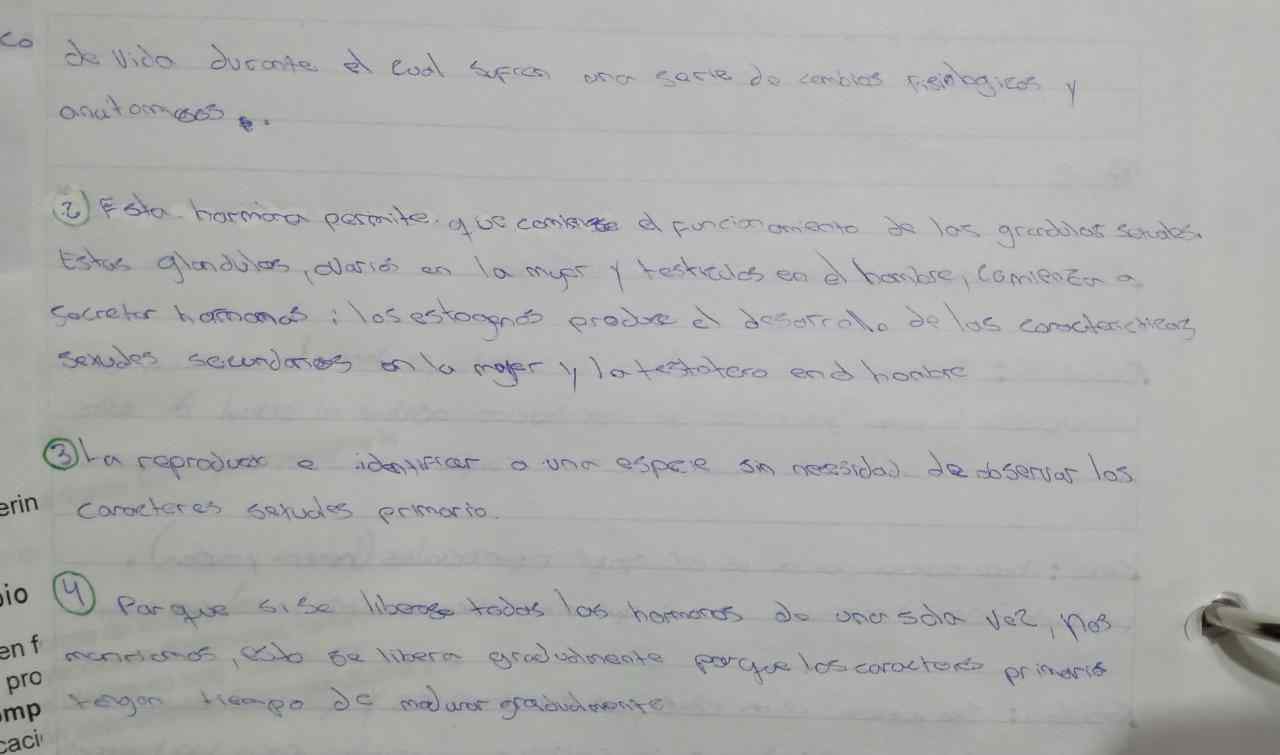 co
de vida durante el cual sufren una serie de cambios fisiologicos y
anatomicos.
2) Esta hormona permite que comience el funcionamiento de las grandulas sexuales.
Estas glandulas, ovarios en la mujer y testiculos en el hombre, comienzan a
secretar hormonas; los estogenos produce el desarrollo de las caracteristicas
sexuales secundarios en la mujer y la testotero en el hombre
3) La reproducir e identificar a una especie sin necesidad de observar los
caracteres sexuales primario.
erin
4) Por que si se liberase todas las hormonas de una sola vez, nos
moririamos, esto se libera gradualmente porque los caracteres primario
tengan tiempo de madurar gradualmente
bio
en f
pro
omp
caci